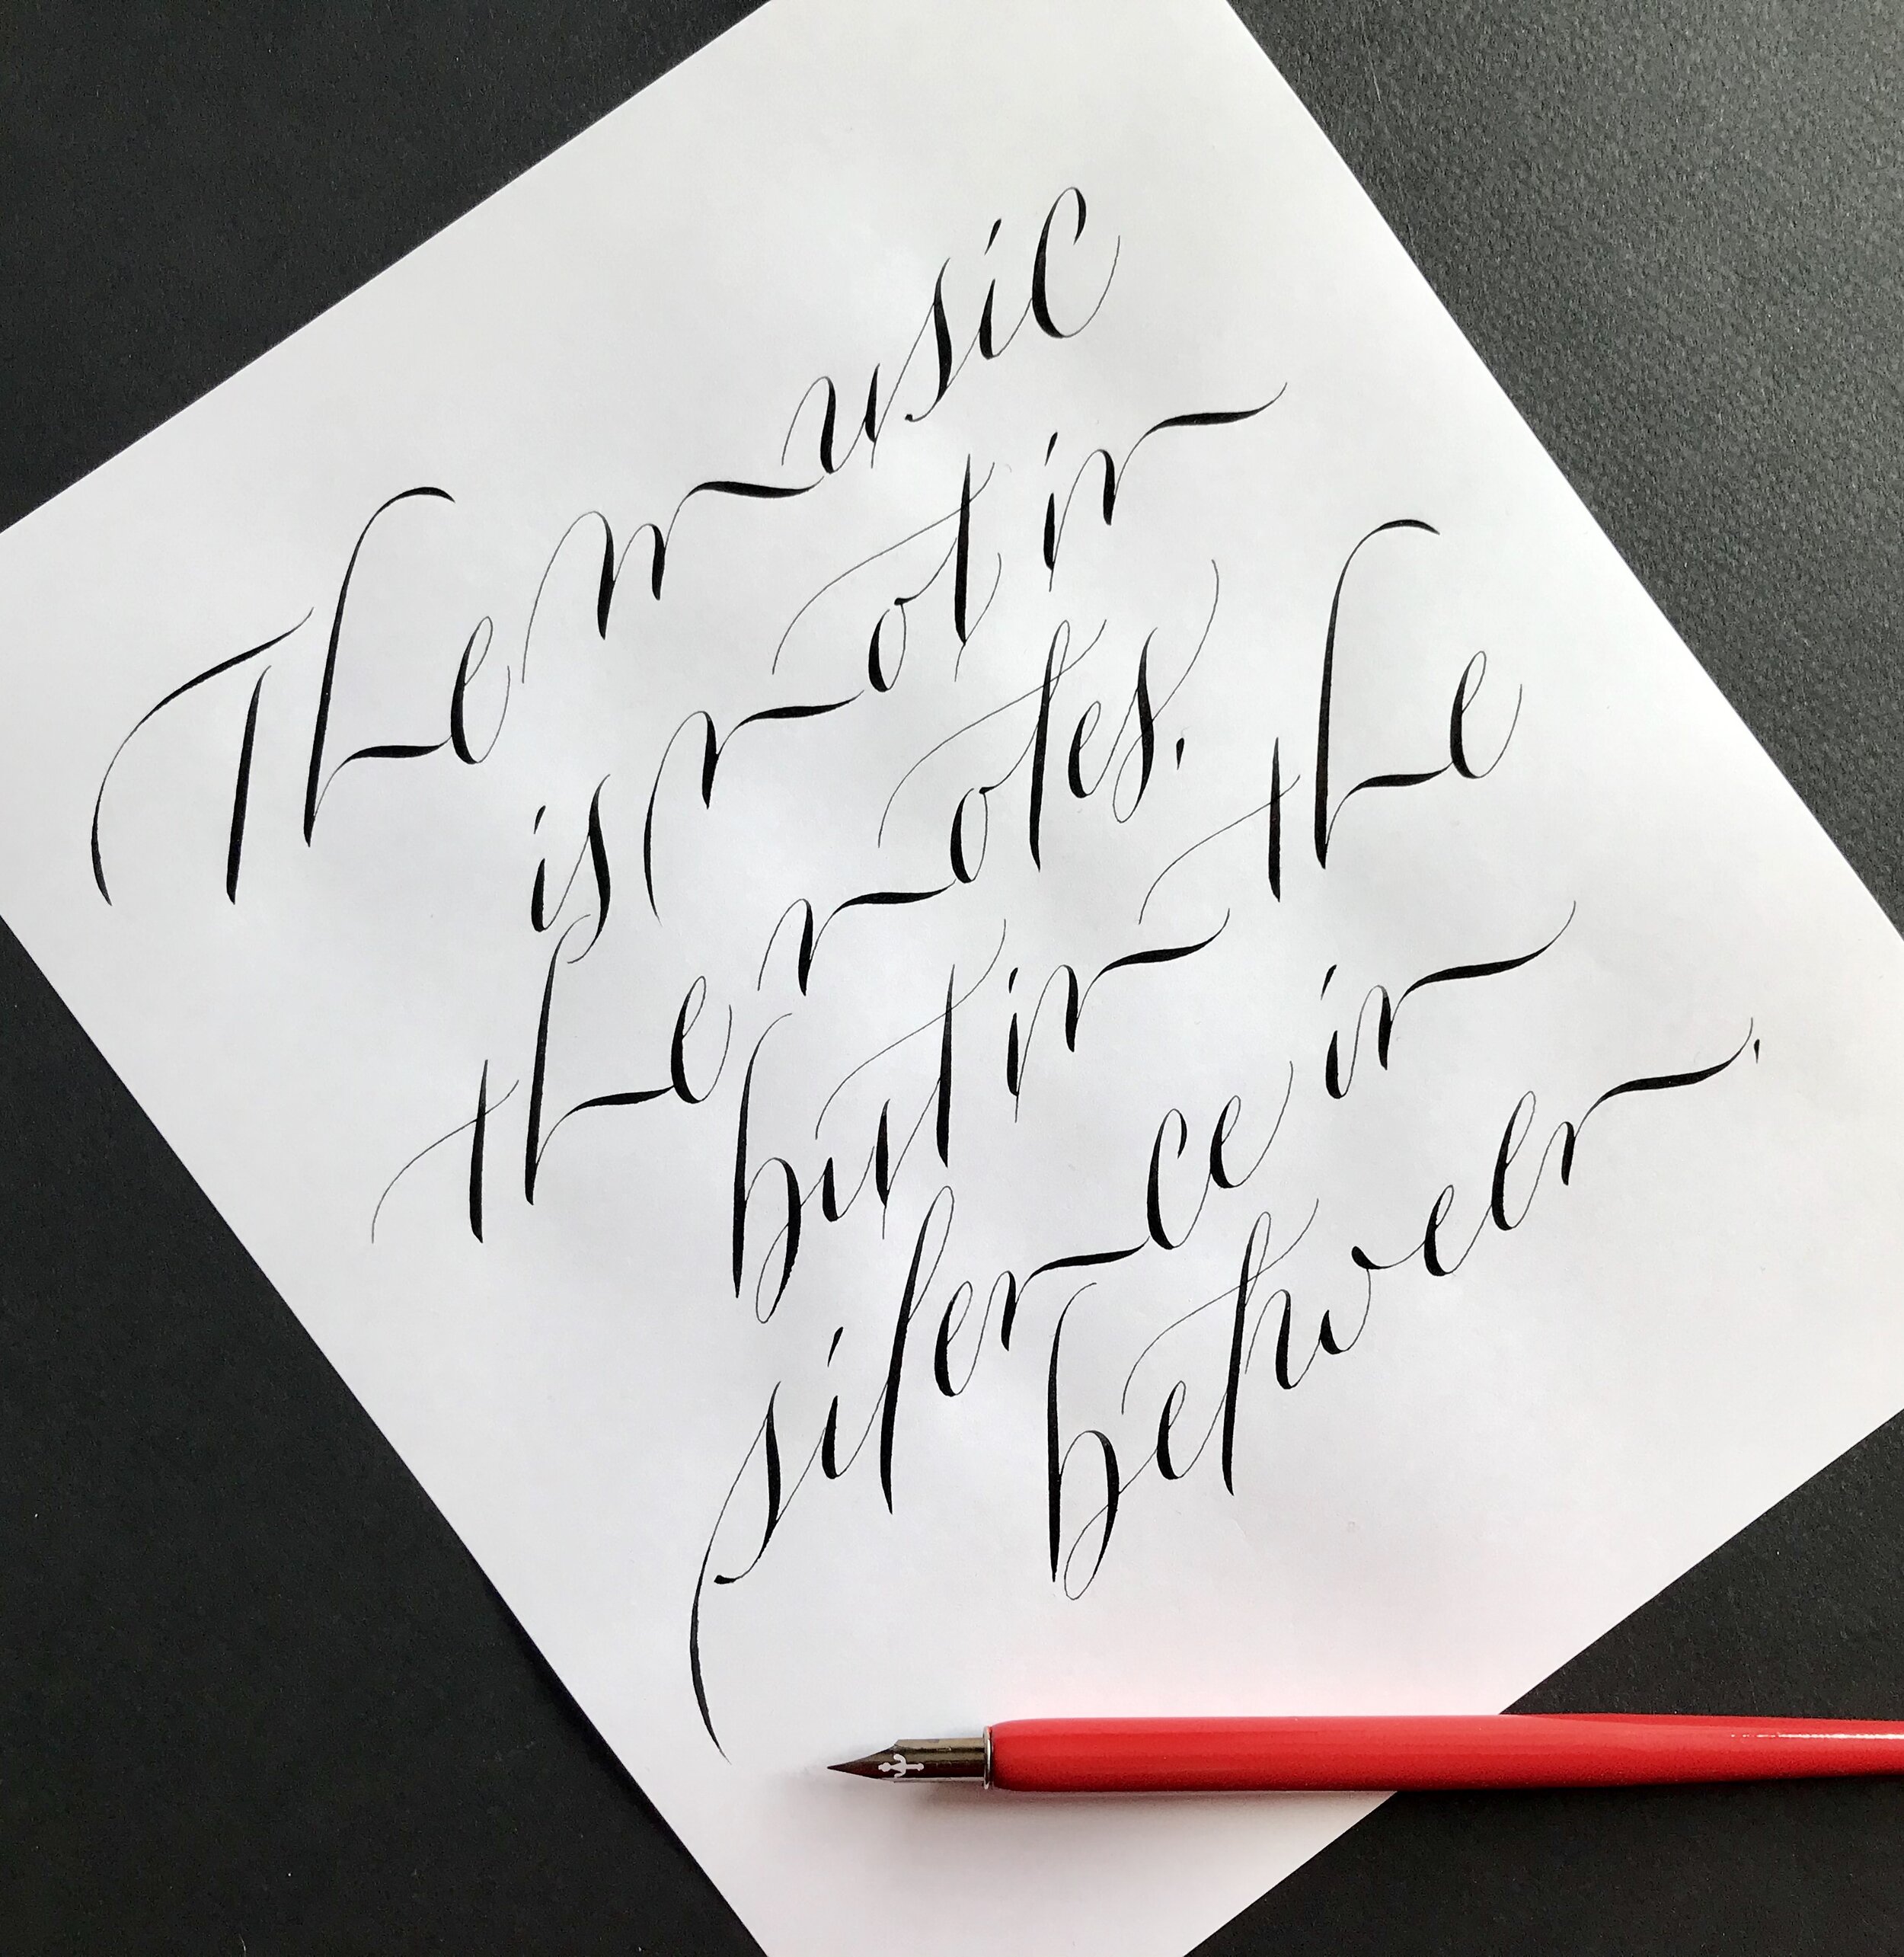 The music
is not in
the notes.
but in the
silence in
between.